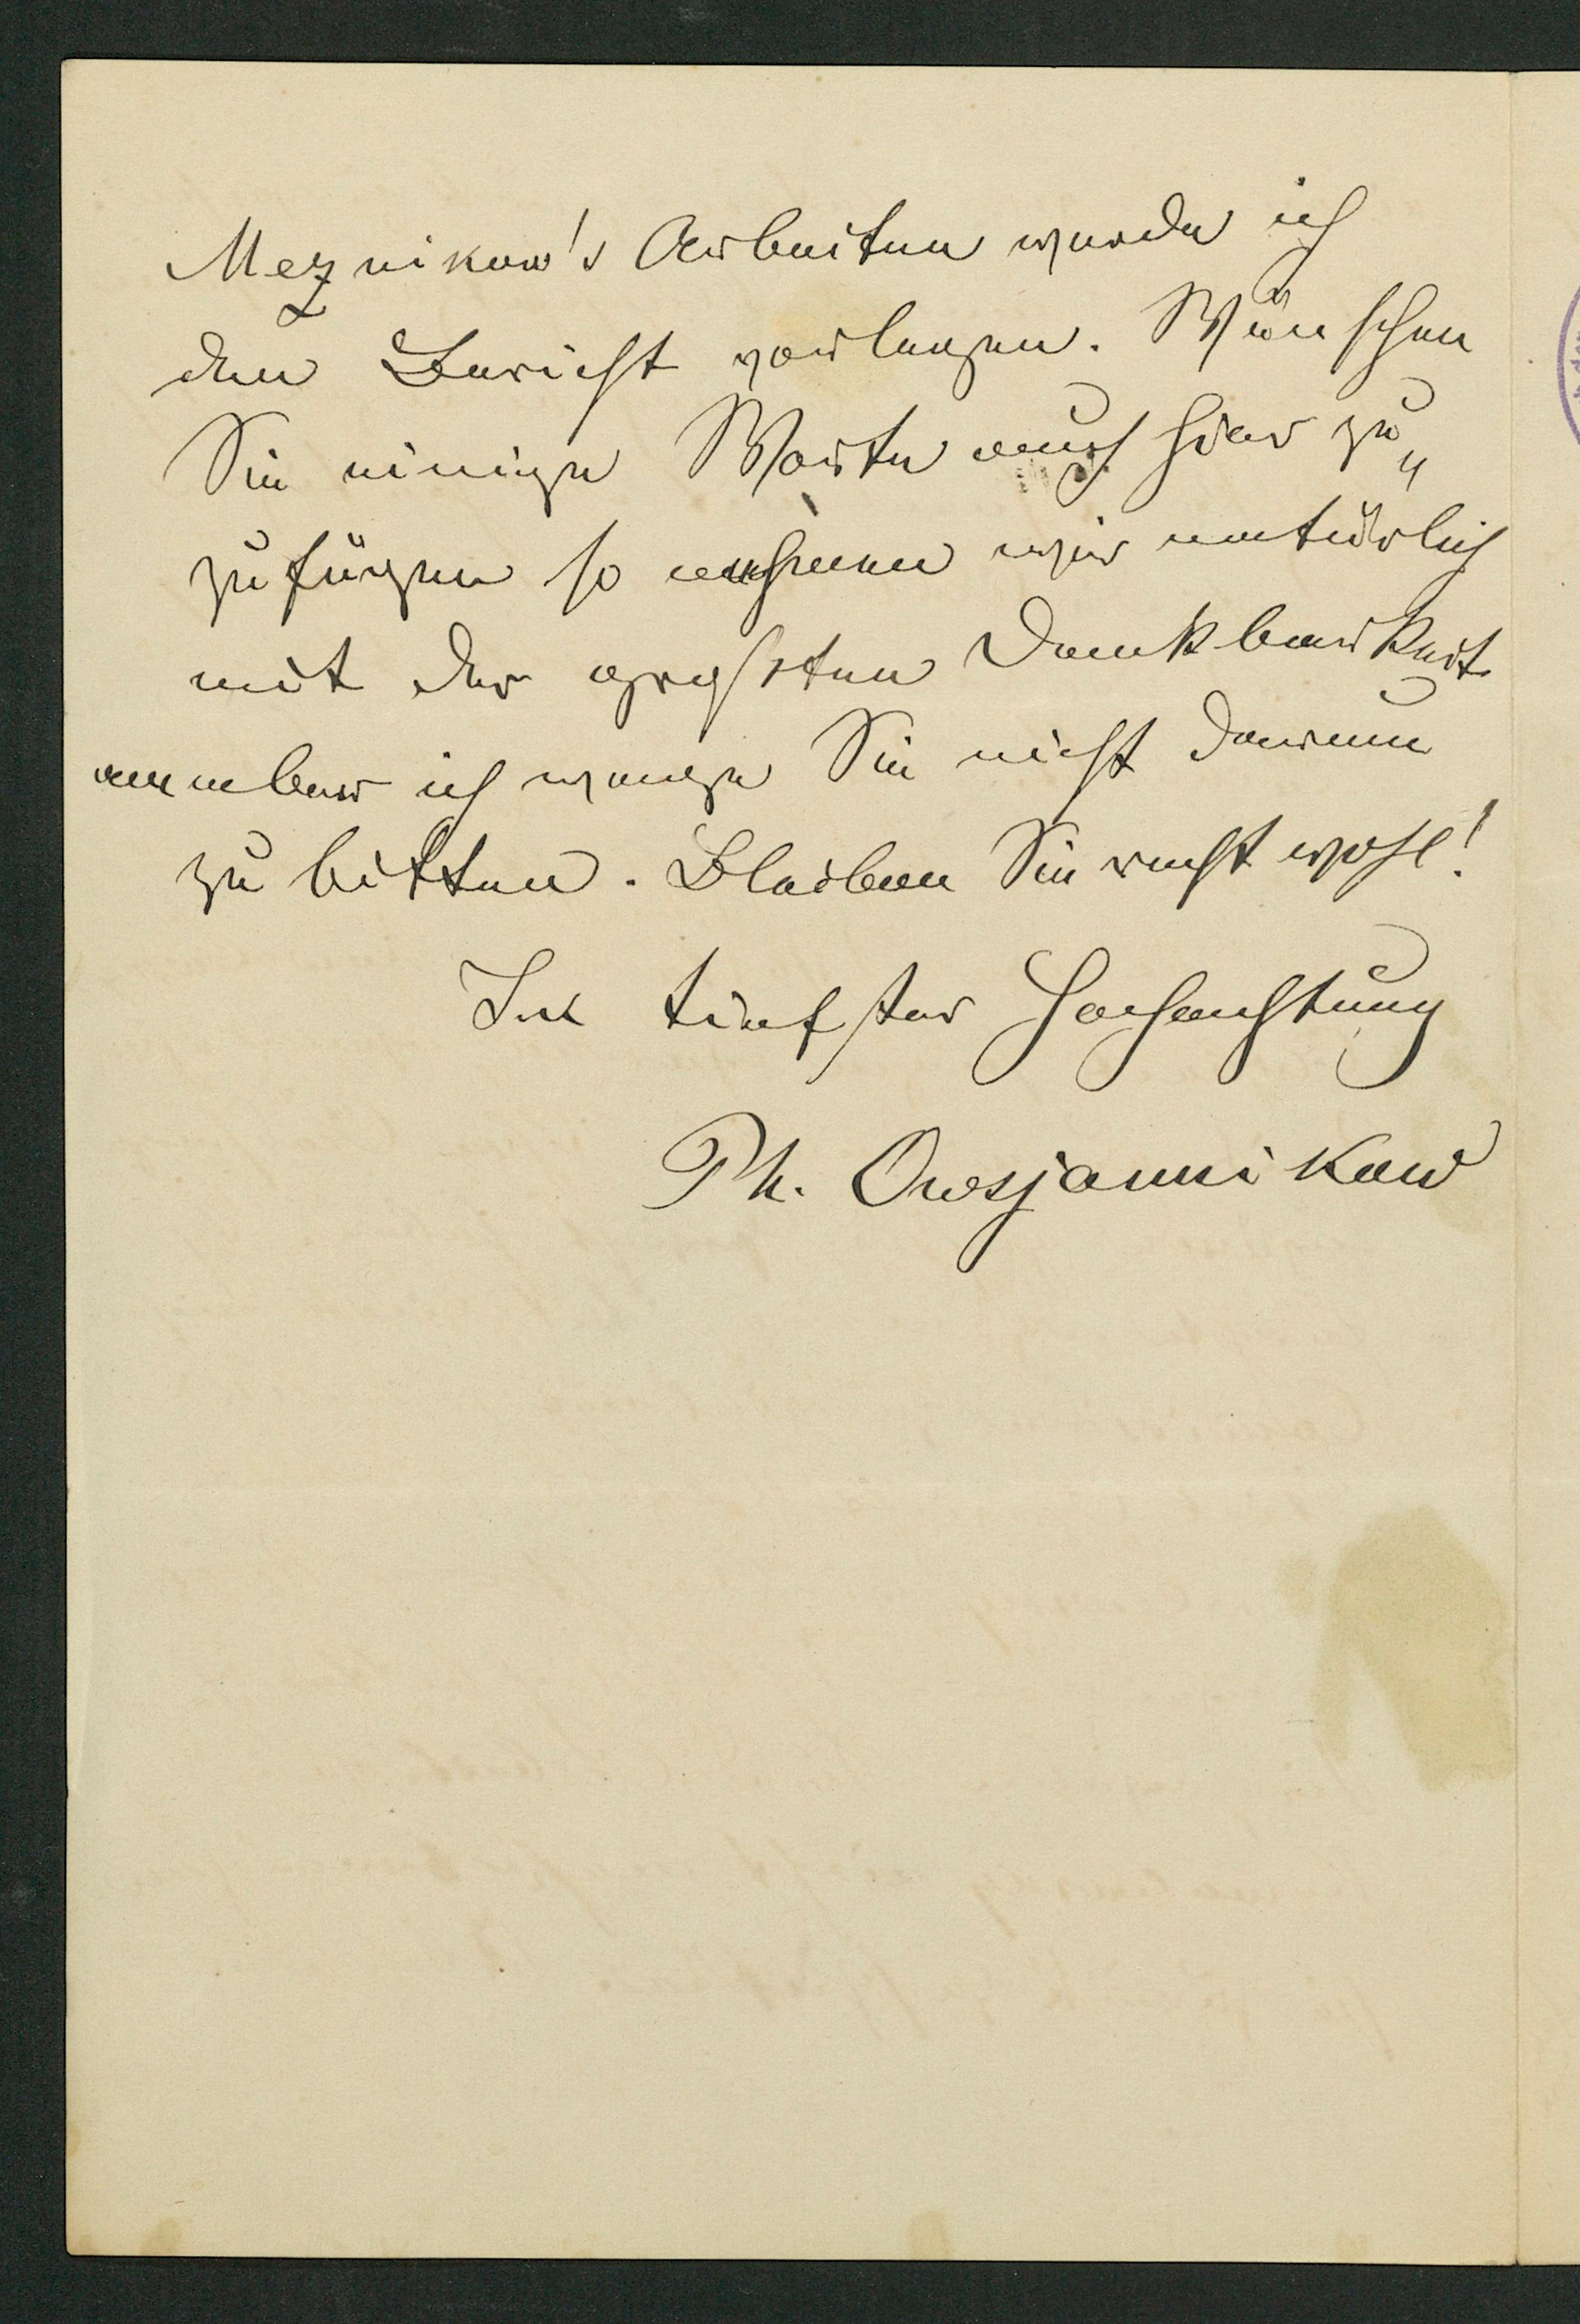 Meznikow's Arbeiten werde ich
den Bericht vorlegen. Wünschen
Sie einige Worte auch hier zu„
zufügen so nehmen wir natürlich
mit der grössten Dankbarkeit
an aber ich wage Sie nicht darum
zu bitten. Bleiben Sie recht wohl!
In tiefster Hochachtung
Ph. Owsjannikow